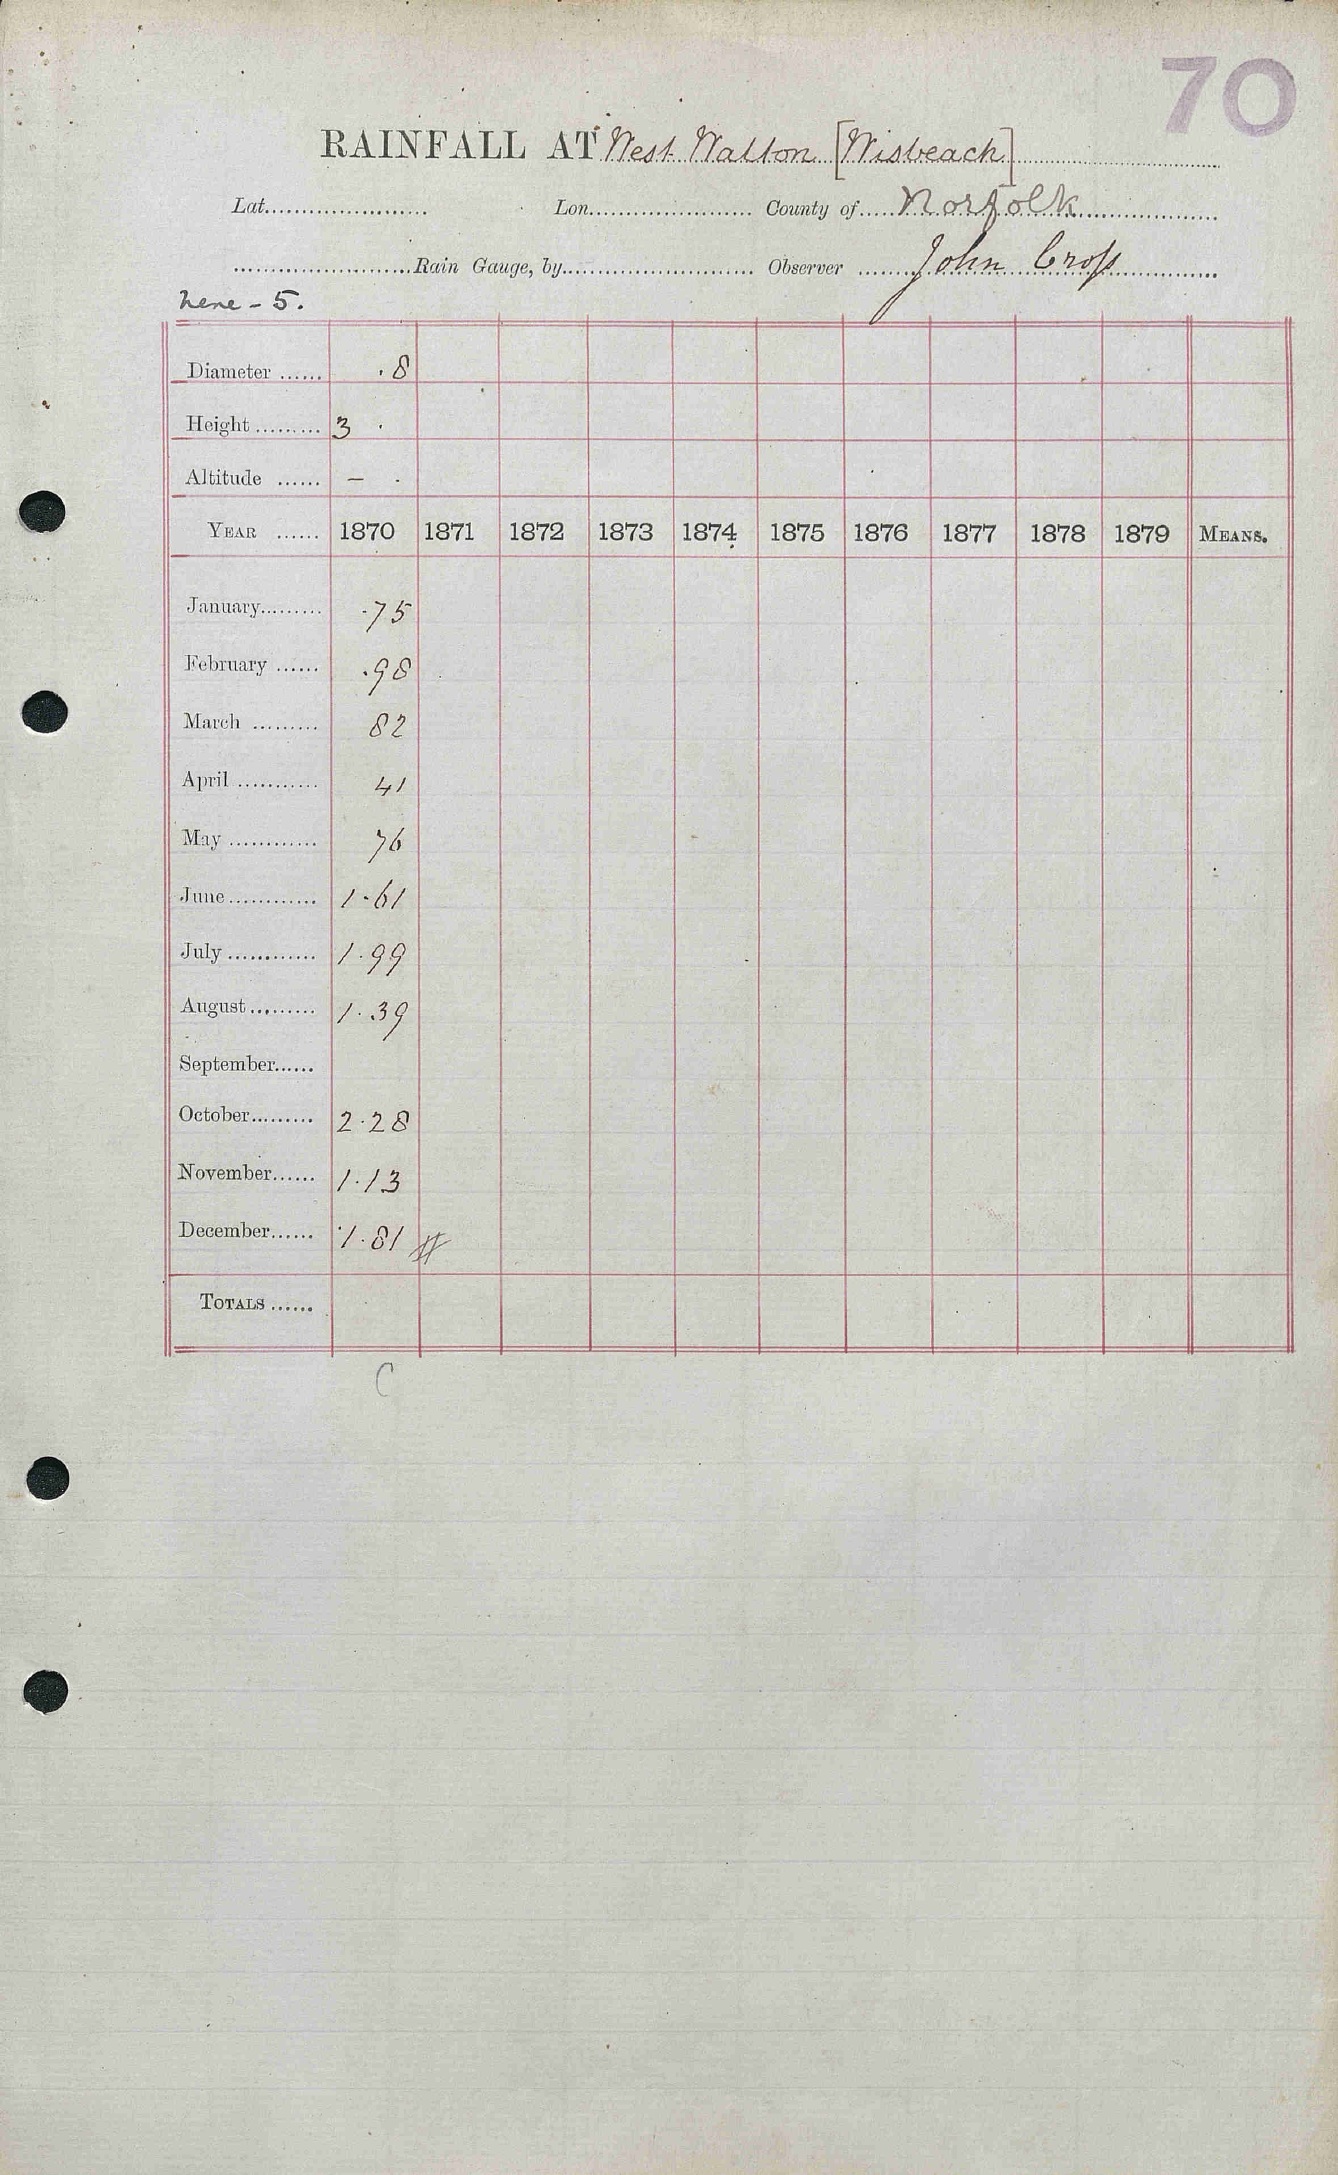 70
RAINFALL AT West Walton [Wisbeach]
Lat...................... Lon...................... County of..... Norfolk
........................Rain Gauge, by.......................... Observer ....... John Cross
Nene - 5.
Diameter ...... .8
Height ......... 3 .
Altitude ...... — .
YEAR ...... 1870 1871 1872 1873 1874 1875 1876 1877 1878 1879 MEANS.
January......... .75
February ...... .98
March ......... 82
April ........... 41
May ............ 76
June............ 1.61
July ............ 1.99
August......... 1.39
September......
October......... 2.28
November...... 1.13
December...... 1.81 #
TOTALS ......
C